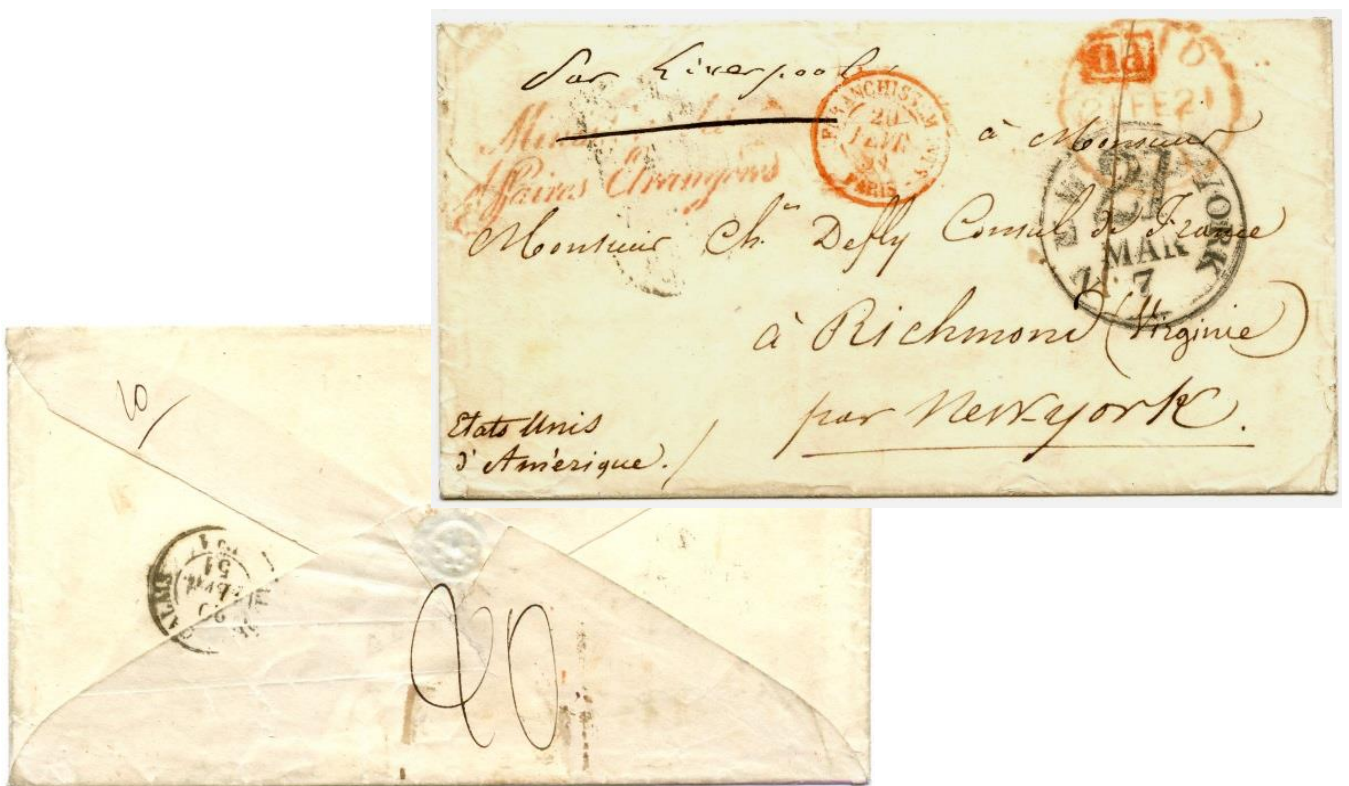 par Liverpool
Ministère des
Affaires Etrangères
AFFRANCHISSEMENTS
20
FEVR.
PARIS
PD
PAID
21 FE 21
NEW YORK
21
MAR
7
à Monsieur
Monsieur Ch. Defly Consul de France
à Richmond (Virginie)
par New-york.
Etats Unis
d'Amérique.
CALAIS
20
51
20